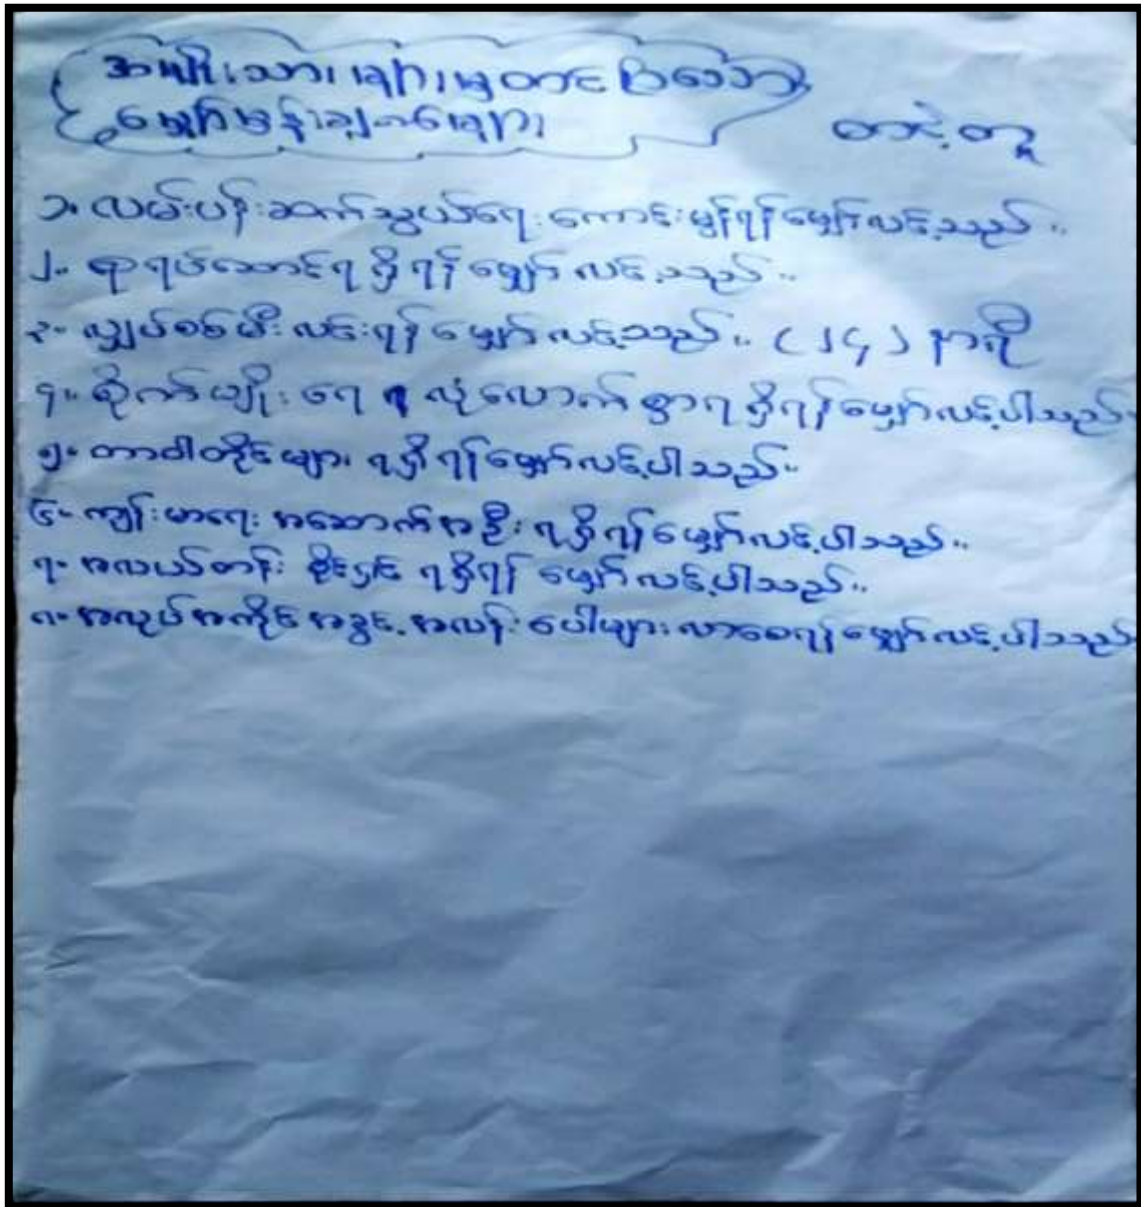 အမျိုးသားများမှတင်ပြသော
မျှော်မှန်းချက်များ
တင့်တူ
၁။ လမ်းပန်းဆက်သွယ်ရေးကောင်းမွန်ရန်မျှော်လင့်သည်။
၂။ ရာရပ်ဆောင်ရရှိရန်မျှော်လင့်သည်။
၃။ လျှပ်စစ်မီးလင်းရန်မျှော်လင့်သည်။ (၂၄) နာရီ
၄။ စိုက်ပျိုးရေရလုံလောက်စွာရရှိရန်မျှော်လင့်ပါသည်။
၅။ တာဝါတိုင်များရရှိရန်မျှော်လင့်ပါသည်။
၆။ ကျန်းမာရေးအဆောက်အဦးရရှိရန်မျှော်လင့်ပါသည်။
၇။ အလယ်တန်း ရရှိရန်မျှော်လင့်ပါသည်။
၈။ အလုပ်အကိုင်အခွင့်အလန်းပေါများလာစေရန်မျှော်လင့်ပါသည်